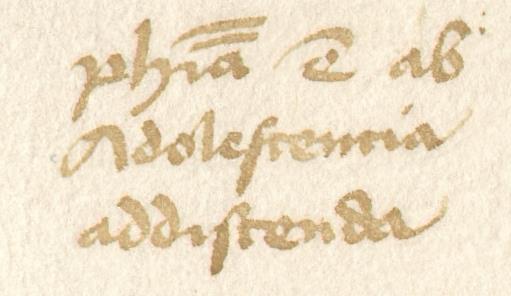 phīa ē ab
Adolescencia
addiscenda